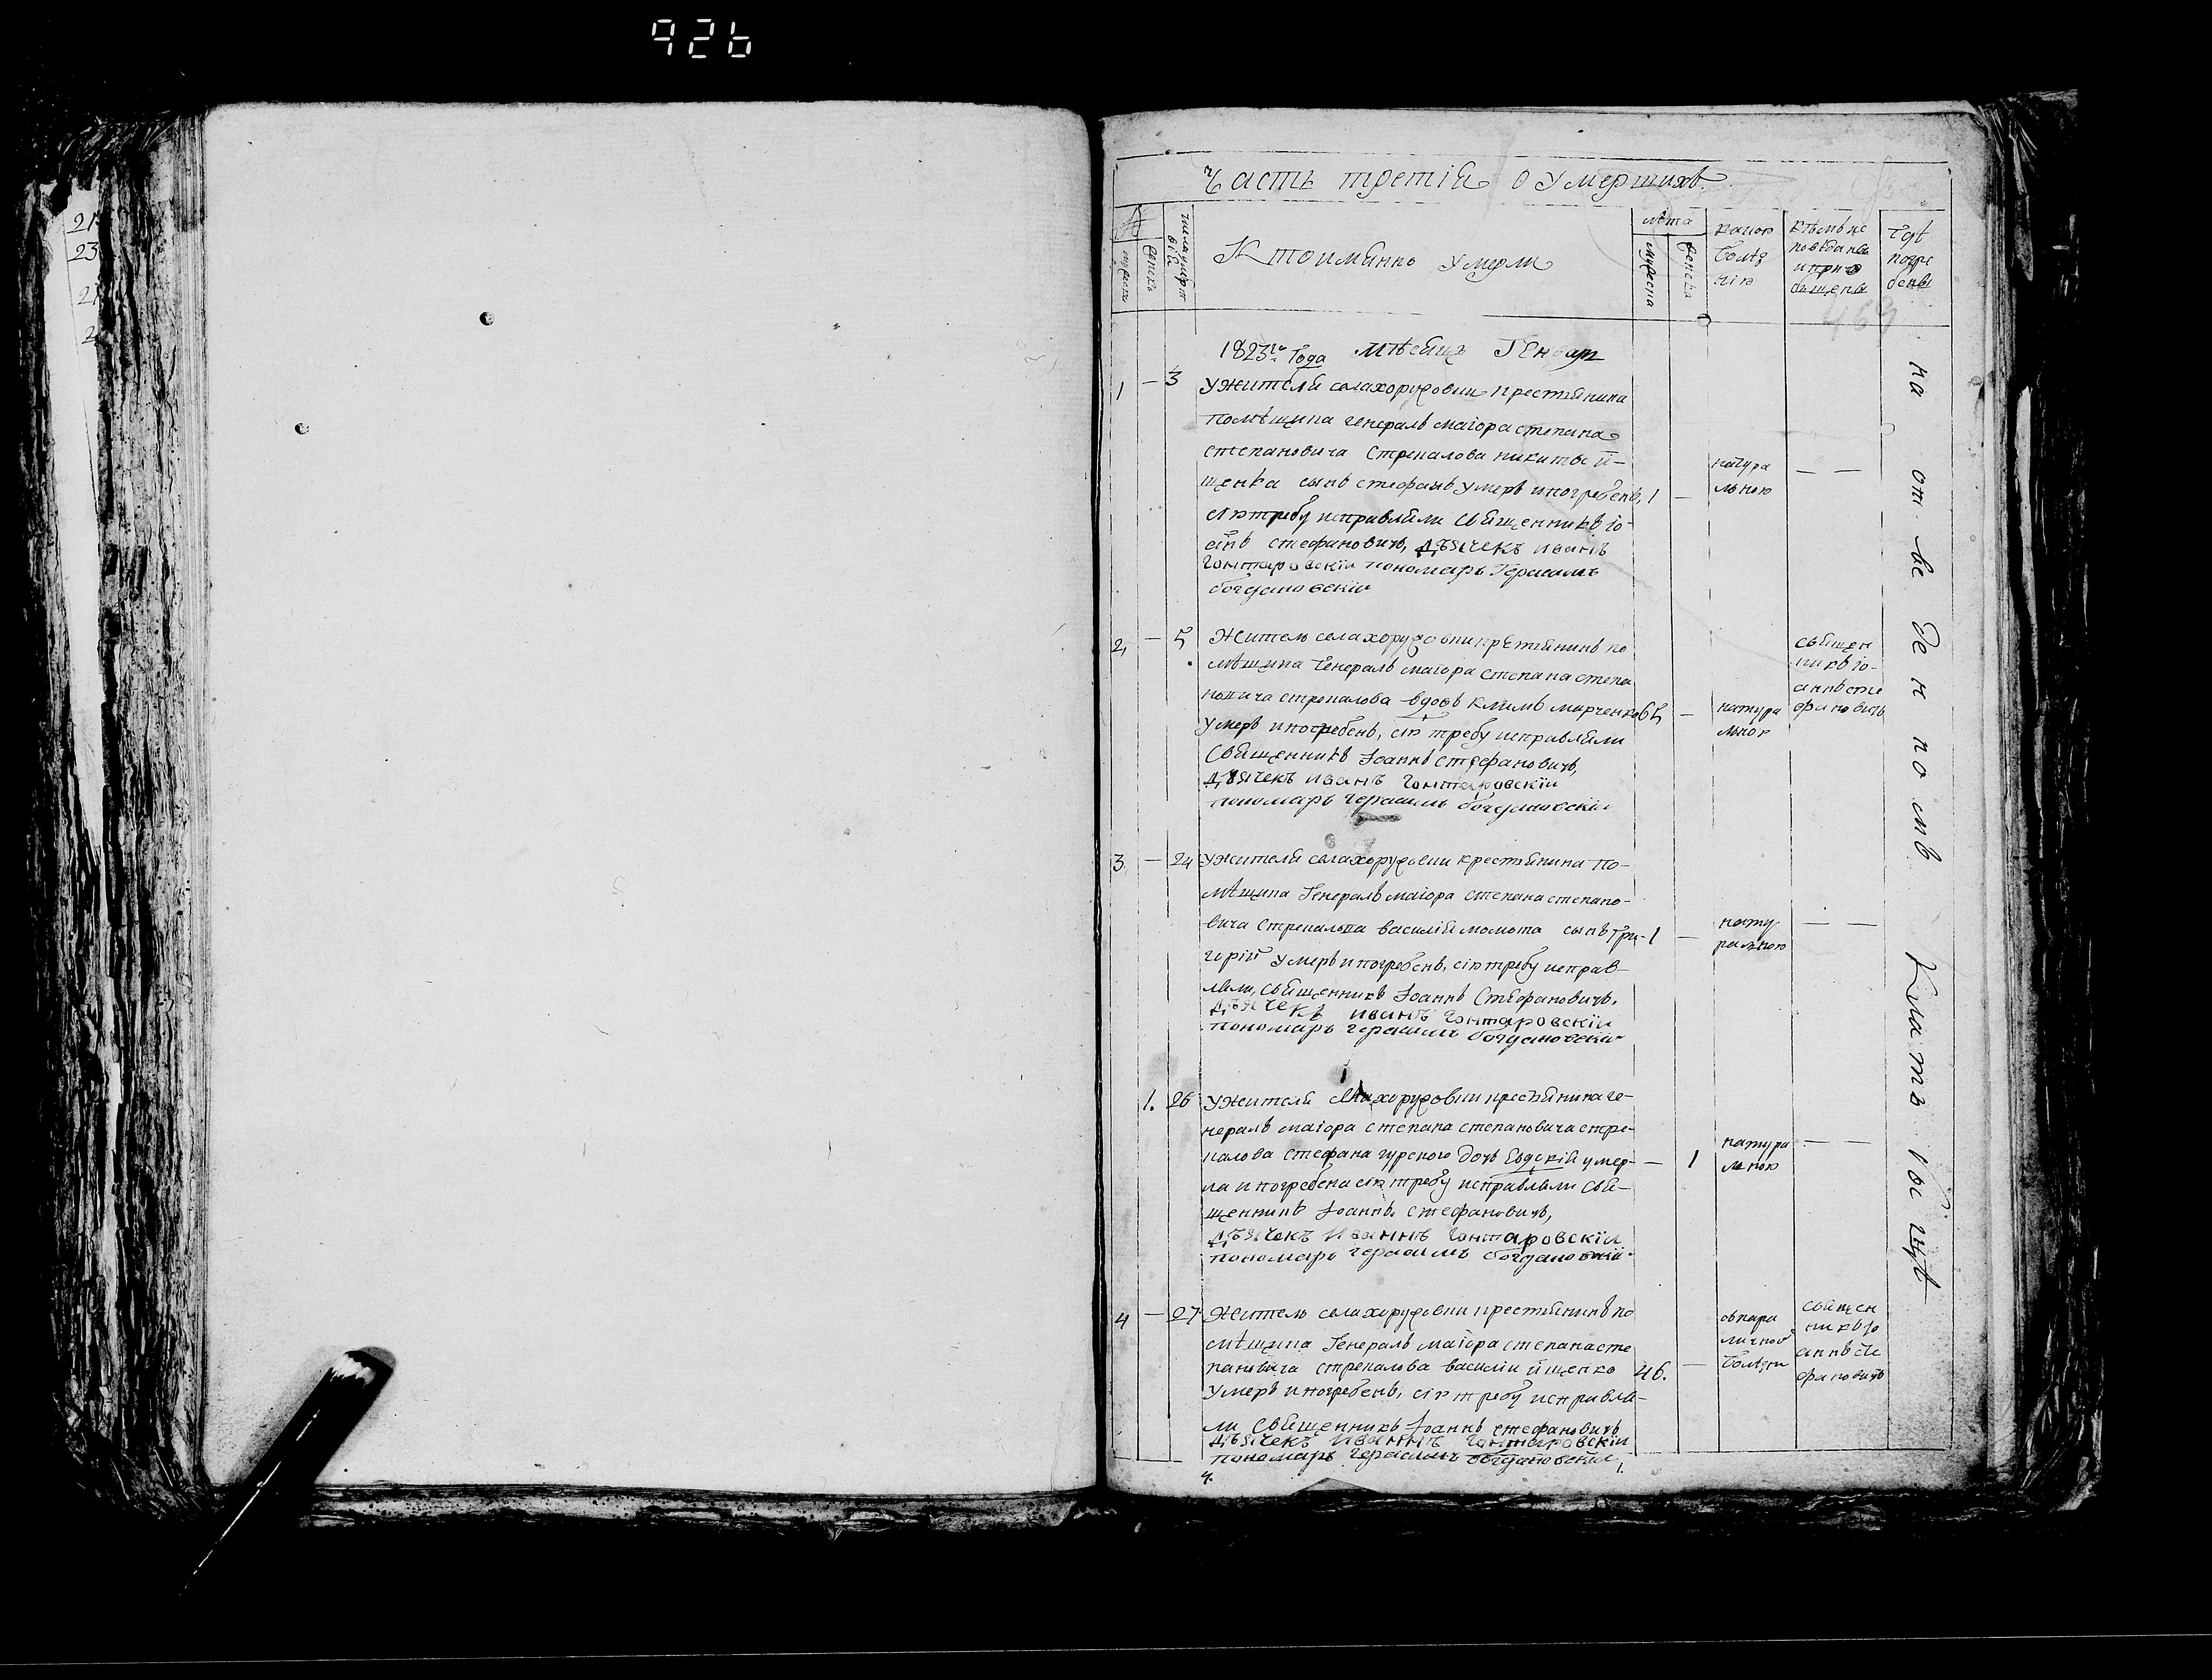 926
21
23
21
2
Часть третія о умершихъ
№
мужеска
женска
числа умертвій
Кто имянно умерли
лѣта
мужеска
женска
какою
болѣз
нію
кѣмъ ис
поведаны
и прио
бщены
гдѣ
погре
бены
469
1823го года мѣсяцъ Генварь
1 — 3 У жителя села хоружовки крестянина
помѣщика генералъ маіора степана
степановича Стрекалова никиты й-
щенка сынъ стефанъ умеръ и погребенъ, 1 —
сію требу исправляли Священникъ Іо-
анъ стефановичъ, дьячекъ иванъ
гонтаровскій пономарь Герасимъ
богдановскій
натура
льною
— —
2, — 5 Житель села хоружовки крестянинъ по
мѣщика Генералъ маіора степана степа
новича стрекалова вдовъ климъ марченко 65 —
умеръ и погребенъ, сію требу исправляли
Священникъ Іоаннъ стефановичъ,
дьячекъ иванъ гонтаровскій
пономарь герасимъ богдановскій
натура
льною
священ
никъ Іо-
аннъ сте
фановичъ
3. — 24 У жителя села хоружовки крестянина по-
мѣщика Генералъ маіора степана степано-
вича Стрекалова василія момота сынъ Гри- 1 —
горій умеръ и погребенъ, сію требу исправ-
ляли, Священникъ Іоаннъ Стефановичъ,
дьячекъ иванъ гонтаровскій
пономарь герасимъ богдановскій
нату
ральною
— —
1. 26 У жителя села хоружовки крестянина ге-
нералъ маіора степана степановича стре-
калова стефана гурского дочь Евдокія умер- — 1
ла и погребена сію требу исправляли Свя-
щенникъ Іоаннъ стефановичъ,
дьячекъ Иваннъ гонтаровскій
пономарь герасимъ богдановскій
натура
льною
— —
4 — 27 Житель села хоружовки крестянинъ по
мѣщика Генералъ маіора степана сте
пановича стрекалова василій йщенко 46. —
умеръ и погребенъ, сію требу исправля-
ли Священникъ Іоаннъ стефановичъ
дьячекъ Иваннъ гонтаровскій
пономарь герасимъ богдановскій
4. 1.
параличной
болѣзни
священ
никъ Іо
аннъ сте
фановичъ
на отведенномъ кладбищѣ